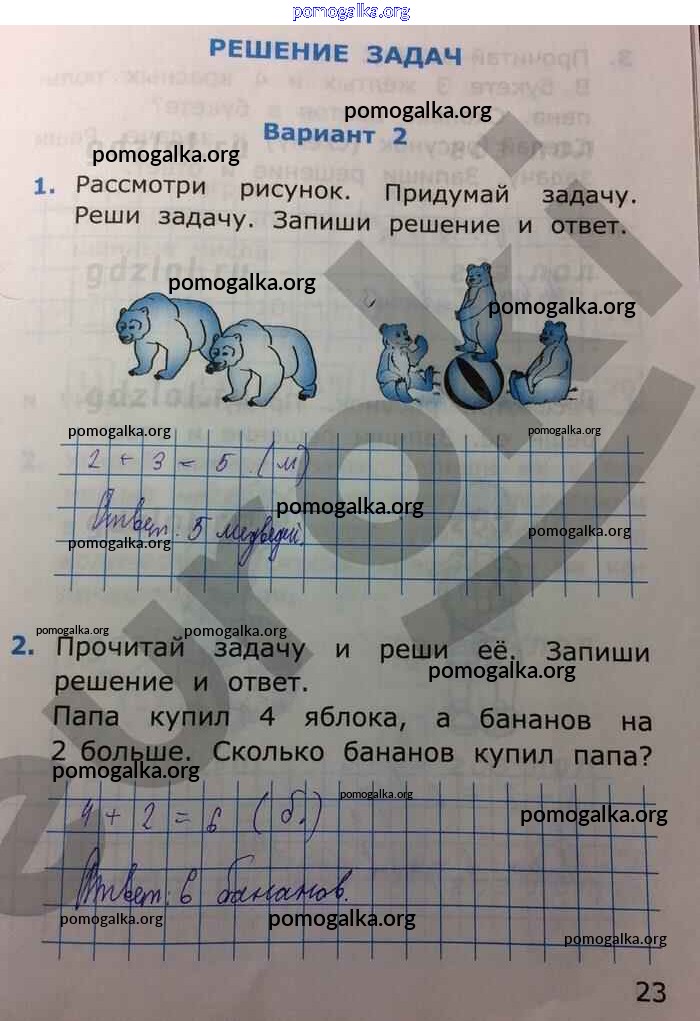 pomogalka.org
РЕШЕНИЕ ЗАДАЧ
pomogalka.org
Вариант 2
pomogalka.org
1. Рассмотри рисунок. Придумай задачу.
Реши задачу. Запиши решение и ответ.
pomogalka.org
pomogalka.org
pomogalka.org
pomogalka.org
2 + 3 = 5 (м)
pomogalka.org
Ответ: 5 медведей.
pomogalka.org
pomogalka.org
pomogalka.org
pomogalka.org
2. Прочитай задачу и реши её. Запиши
pomogalka.org
решение и ответ.
Папа купил 4 яблока, а бананов на
2 больше. Сколько бананов купил папа?
pomogalka.org
pomogalka.org
4 + 2 = 6 (б.)
pomogalka.org
Ответ: 6 бананов.
pomogalka.org
pomogalka.org
pomogalka.org
23